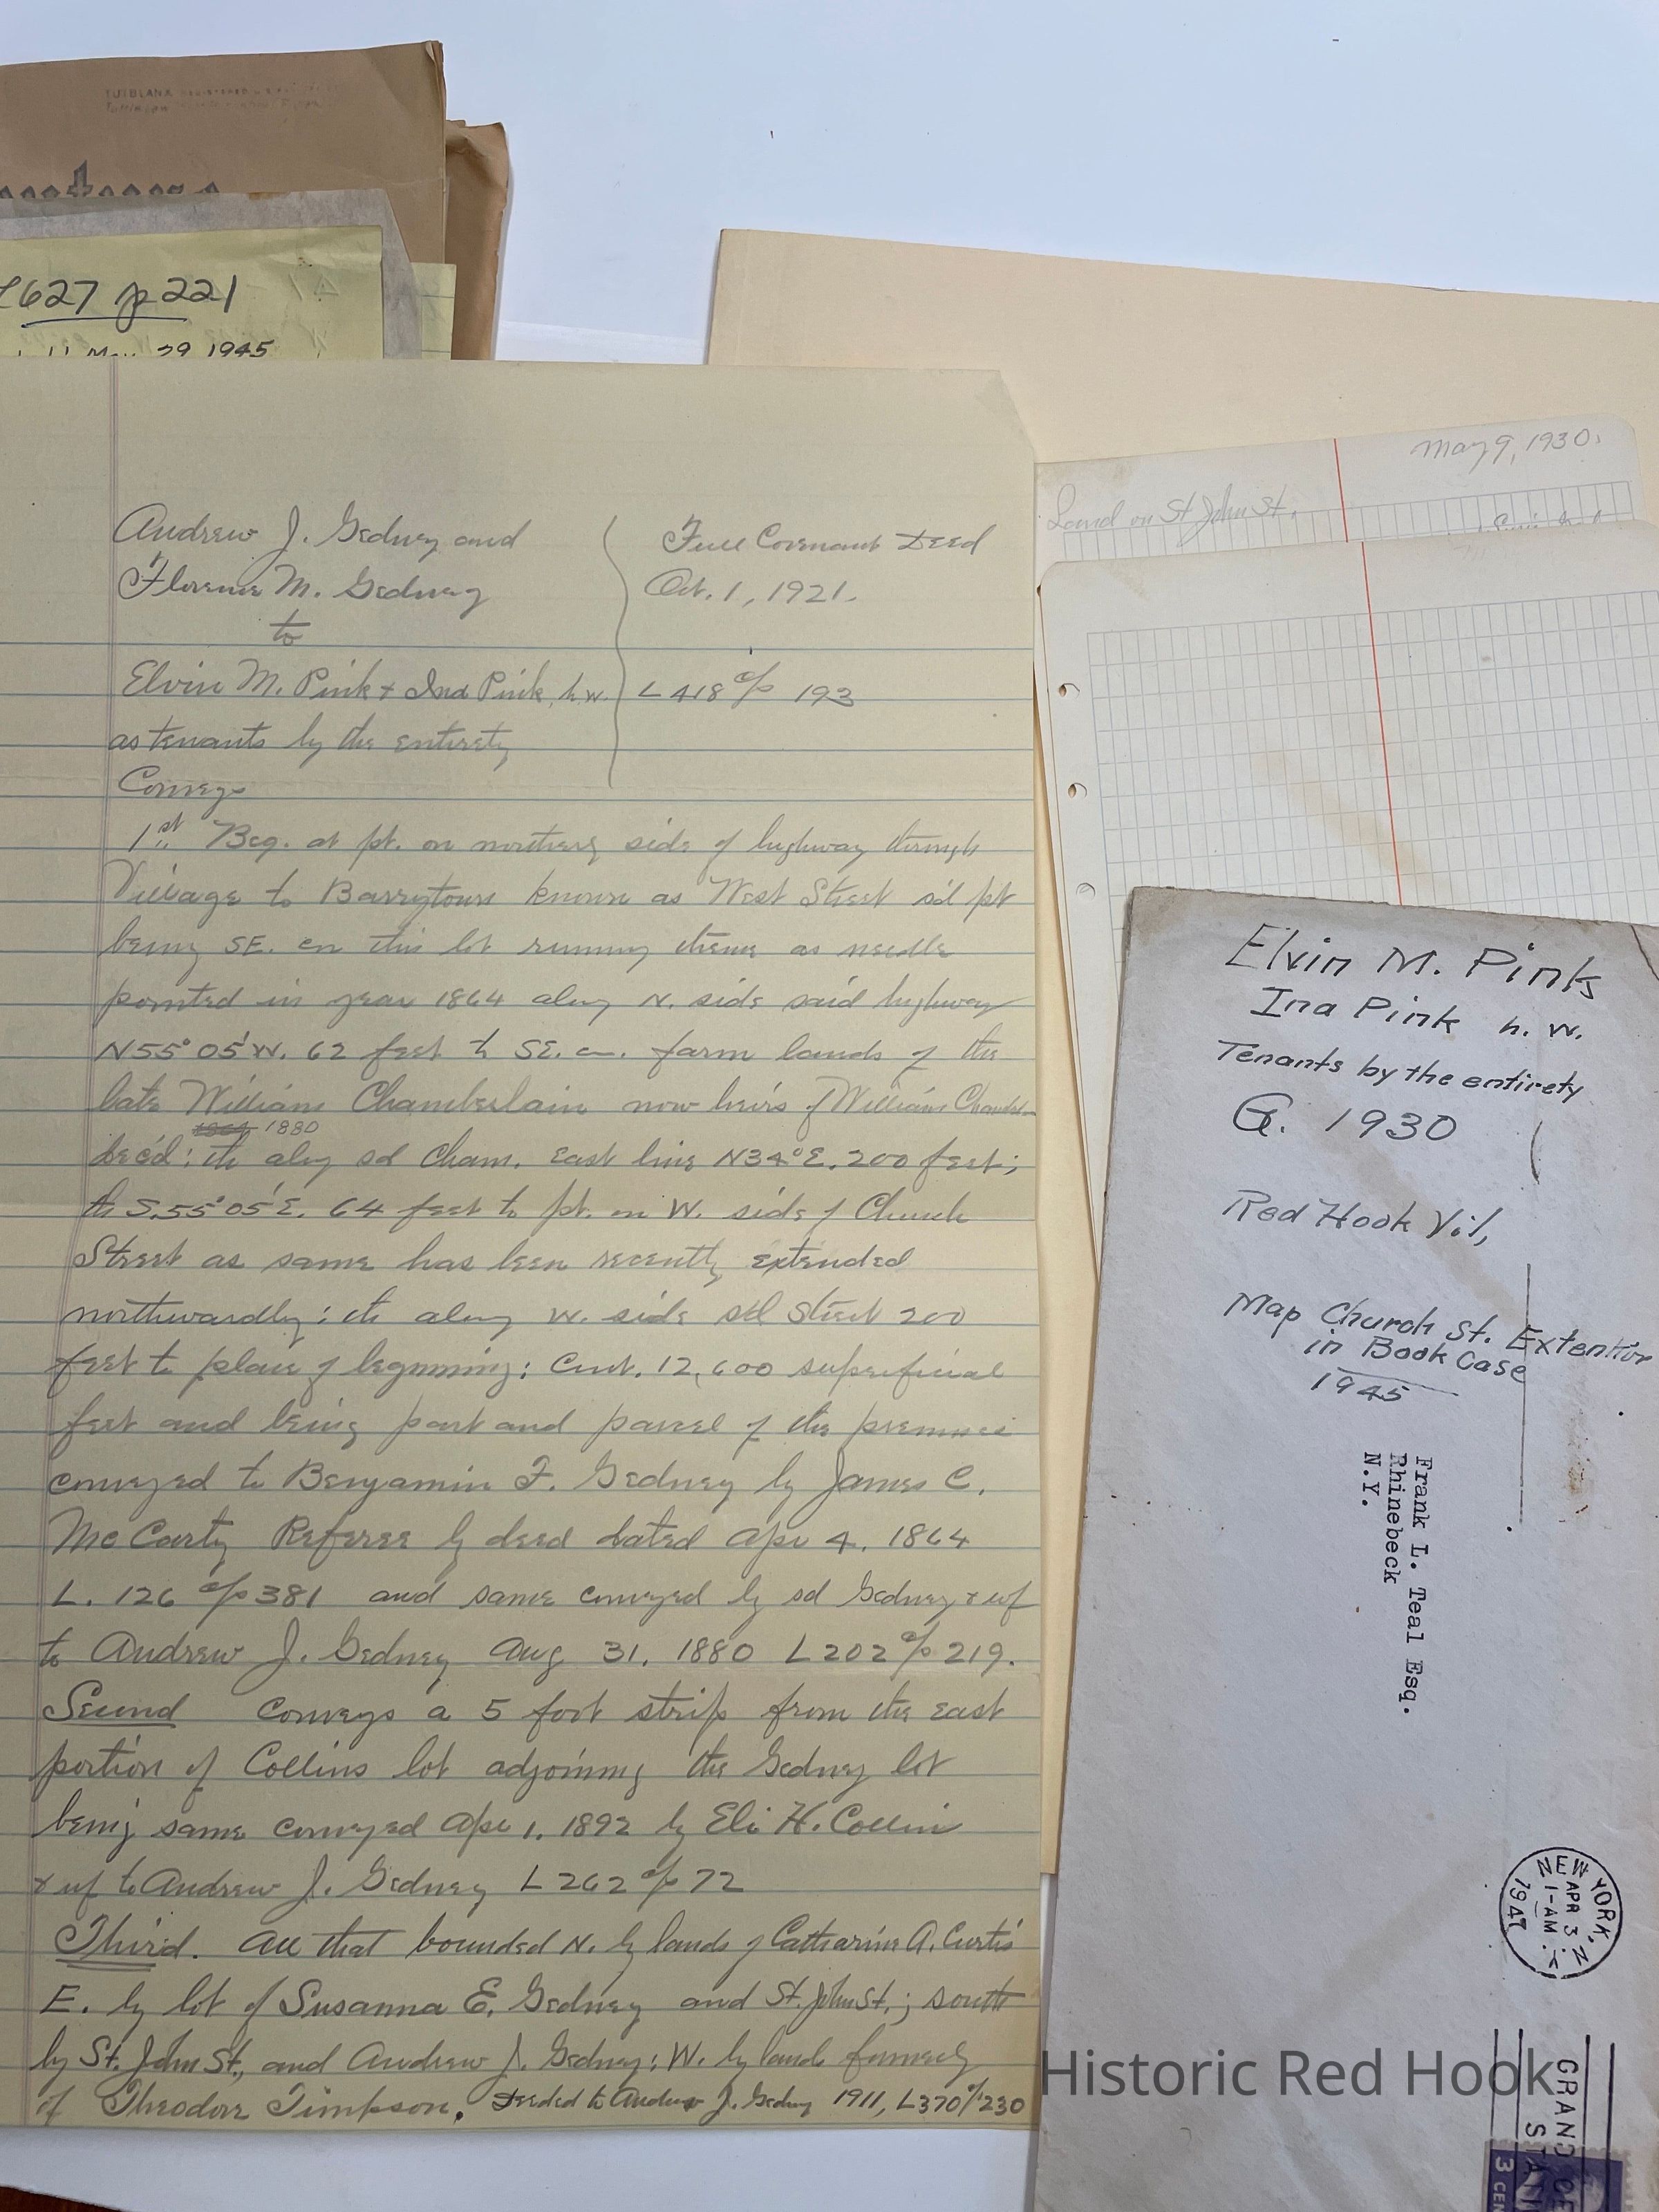 TUTBLANX REGISTERED
L627 p 221
29 1945
May 9, 1930.
Land on St John St.
Andrew J. Gedney and
Florence M. Gedney
to
Elvin M. Pink & Ina Pink, h.w.
as tenants by the entirety
Full Covenant Deed
Oct. 1, 1921.
L 418 c/p 193
Conveys
1st Beg. at pt. on northerly side of highway through
Village to Barrytown known as West Street sd pt
being SE. cn this lot running thence as needle
pointed in year 1864 along N. side said highway
N55° 05' W. 62 feet to SE. cn. farm lands of the
late William Chamberlain now heirs of William Chamberlain
1880
dec'd: th along sd Cham. east line N34° E. 200 feet;
th S.55° 05' E. 64 feet to pt. on W. side of Church
Street as same has been recently extended
northwardly; th along W. side sd Street 200
feet to place of beginning: Cont. 12,600 superficial
feet and being part and parcel of the premises
conveyed to Benjamin F. Gedney by James C.
McCarty Referee by deed dated Apr 4, 1864
L. 126 c/p 381 and same conveyed by sd Gedney & wf
to Andrew J. Gedney Aug 31, 1880 L202 c/p 219.
Second Conveys a 5 foot strip from the east
portion of Collins lot adjoining the Gedney lot
being same conveyed Apr 1, 1892 by Eli H. Collin
& wf to Andrew J. Gedney L 262 c/p 72
Third. All that bounded N. by lands of Catharine A. Curtis
E. by lot of Susanna E. Gedney and St. John St.; south
by St. John St., and Andrew J. Gedney; W. by lands formerly
of Theodore Timpson. Deeded to Andrew J. Gedney 1911, L370 c/p 230
Elvin M. Pink
Ina Pink h. w.
Tenants by the entirety
G. 1930
Red Hook Vil,
Map Church St. Extention
in Book Case
1945
Frank L. Teal Esq.
Rhinebeck
N.Y.
NEW YORK, N.Y.
APR 3
1-AM
1947
GRAND CE
STA
3 CEN
Historic Red Hook